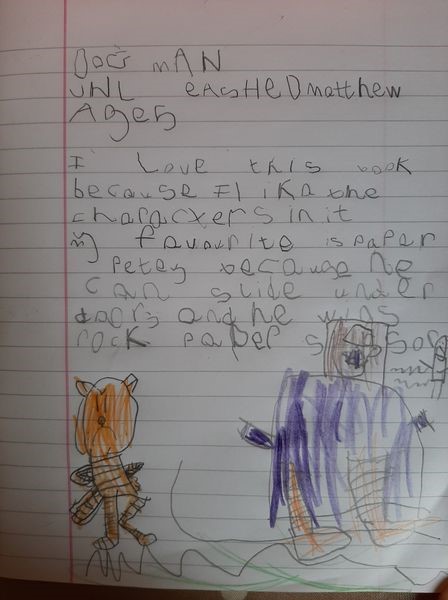 DOG MAN
UNL EASHED matthew
Age 5
I Love this book
because I lika the
characters in it
my favourite is paper
Petey because he
can slide under
doors and he wins
rock paper